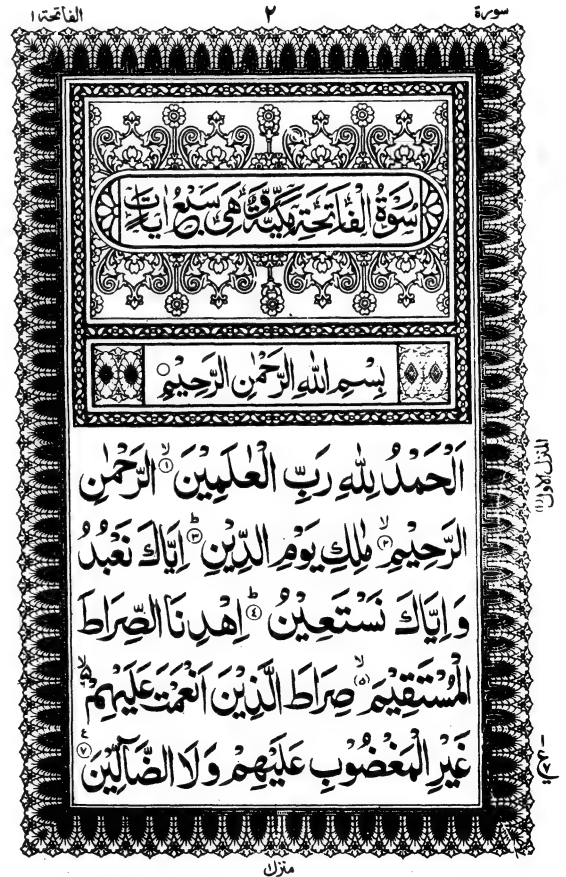 سورة ٢ الفاتحة ١
سُوْرَةُ الْفَاتِحَةِ مَكِّيَّةٌ وَّهِيَ سَبْعُ اٰيَاتٍ
بِسْمِ اللّٰهِ الرَّحْمٰنِ الرَّحِيْمِ
اَلْحَمْدُ لِلّٰهِ رَبِّ الْعٰلَمِيْنَ ۙ﴿١﴾ الرَّحْمٰنِ
الرَّحِيْمِ ۙ﴿٢﴾ مٰلِكِ يَوْمِ الدِّيْنِ ؕ﴿٣﴾ اِيَّاكَ نَعْبُدُ
وَاِيَّاكَ نَسْتَعِيْنُ ؕ﴿٤﴾ اِهْدِنَا الصِّرَاطَ
الْمُسْتَقِيْمَ ۙ﴿٥﴾ صِرَاطَ الَّذِيْنَ اَنْعَمْتَ عَلَيْهِمْ ۙ﴿٦﴾
غَيْرِ الْمَغْضُوْبِ عَلَيْهِمْ وَلَا الضَّآلِّيْنَ ﴿٧﴾
المنزل الاول (١)
منزل